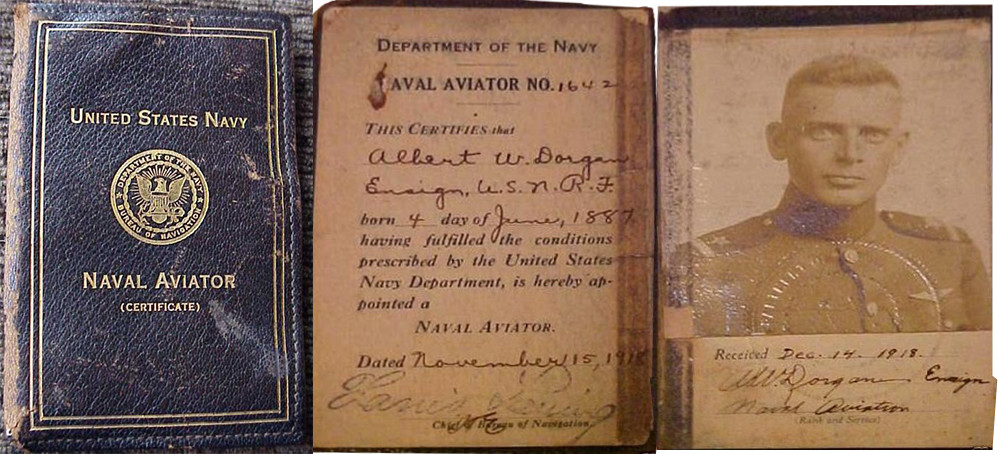 UNITED STATES NAVY
DEPARTMENT OF THE NAVY
BUREAU OF NAVIGATION
NAVAL AVIATOR
(CERTIFICATE)
DEPARTMENT OF THE NAVY
NAVAL AVIATOR NO. 1642
THIS CERTIFIES that
Albert W. Dorgan
Ensign, U.S.N.R.F.
born 4 day of June, 1887
having fulfilled the conditions
prescribed by the United States
Navy Department, is hereby ap-
pointed a
NAVAL AVIATOR.
Dated November 15, 1918
Chief of Bureau of Navigation.
Received Dec. 14. 1918.
AW Dorgan Ensign
Naval Aviation
(Rank and Service)